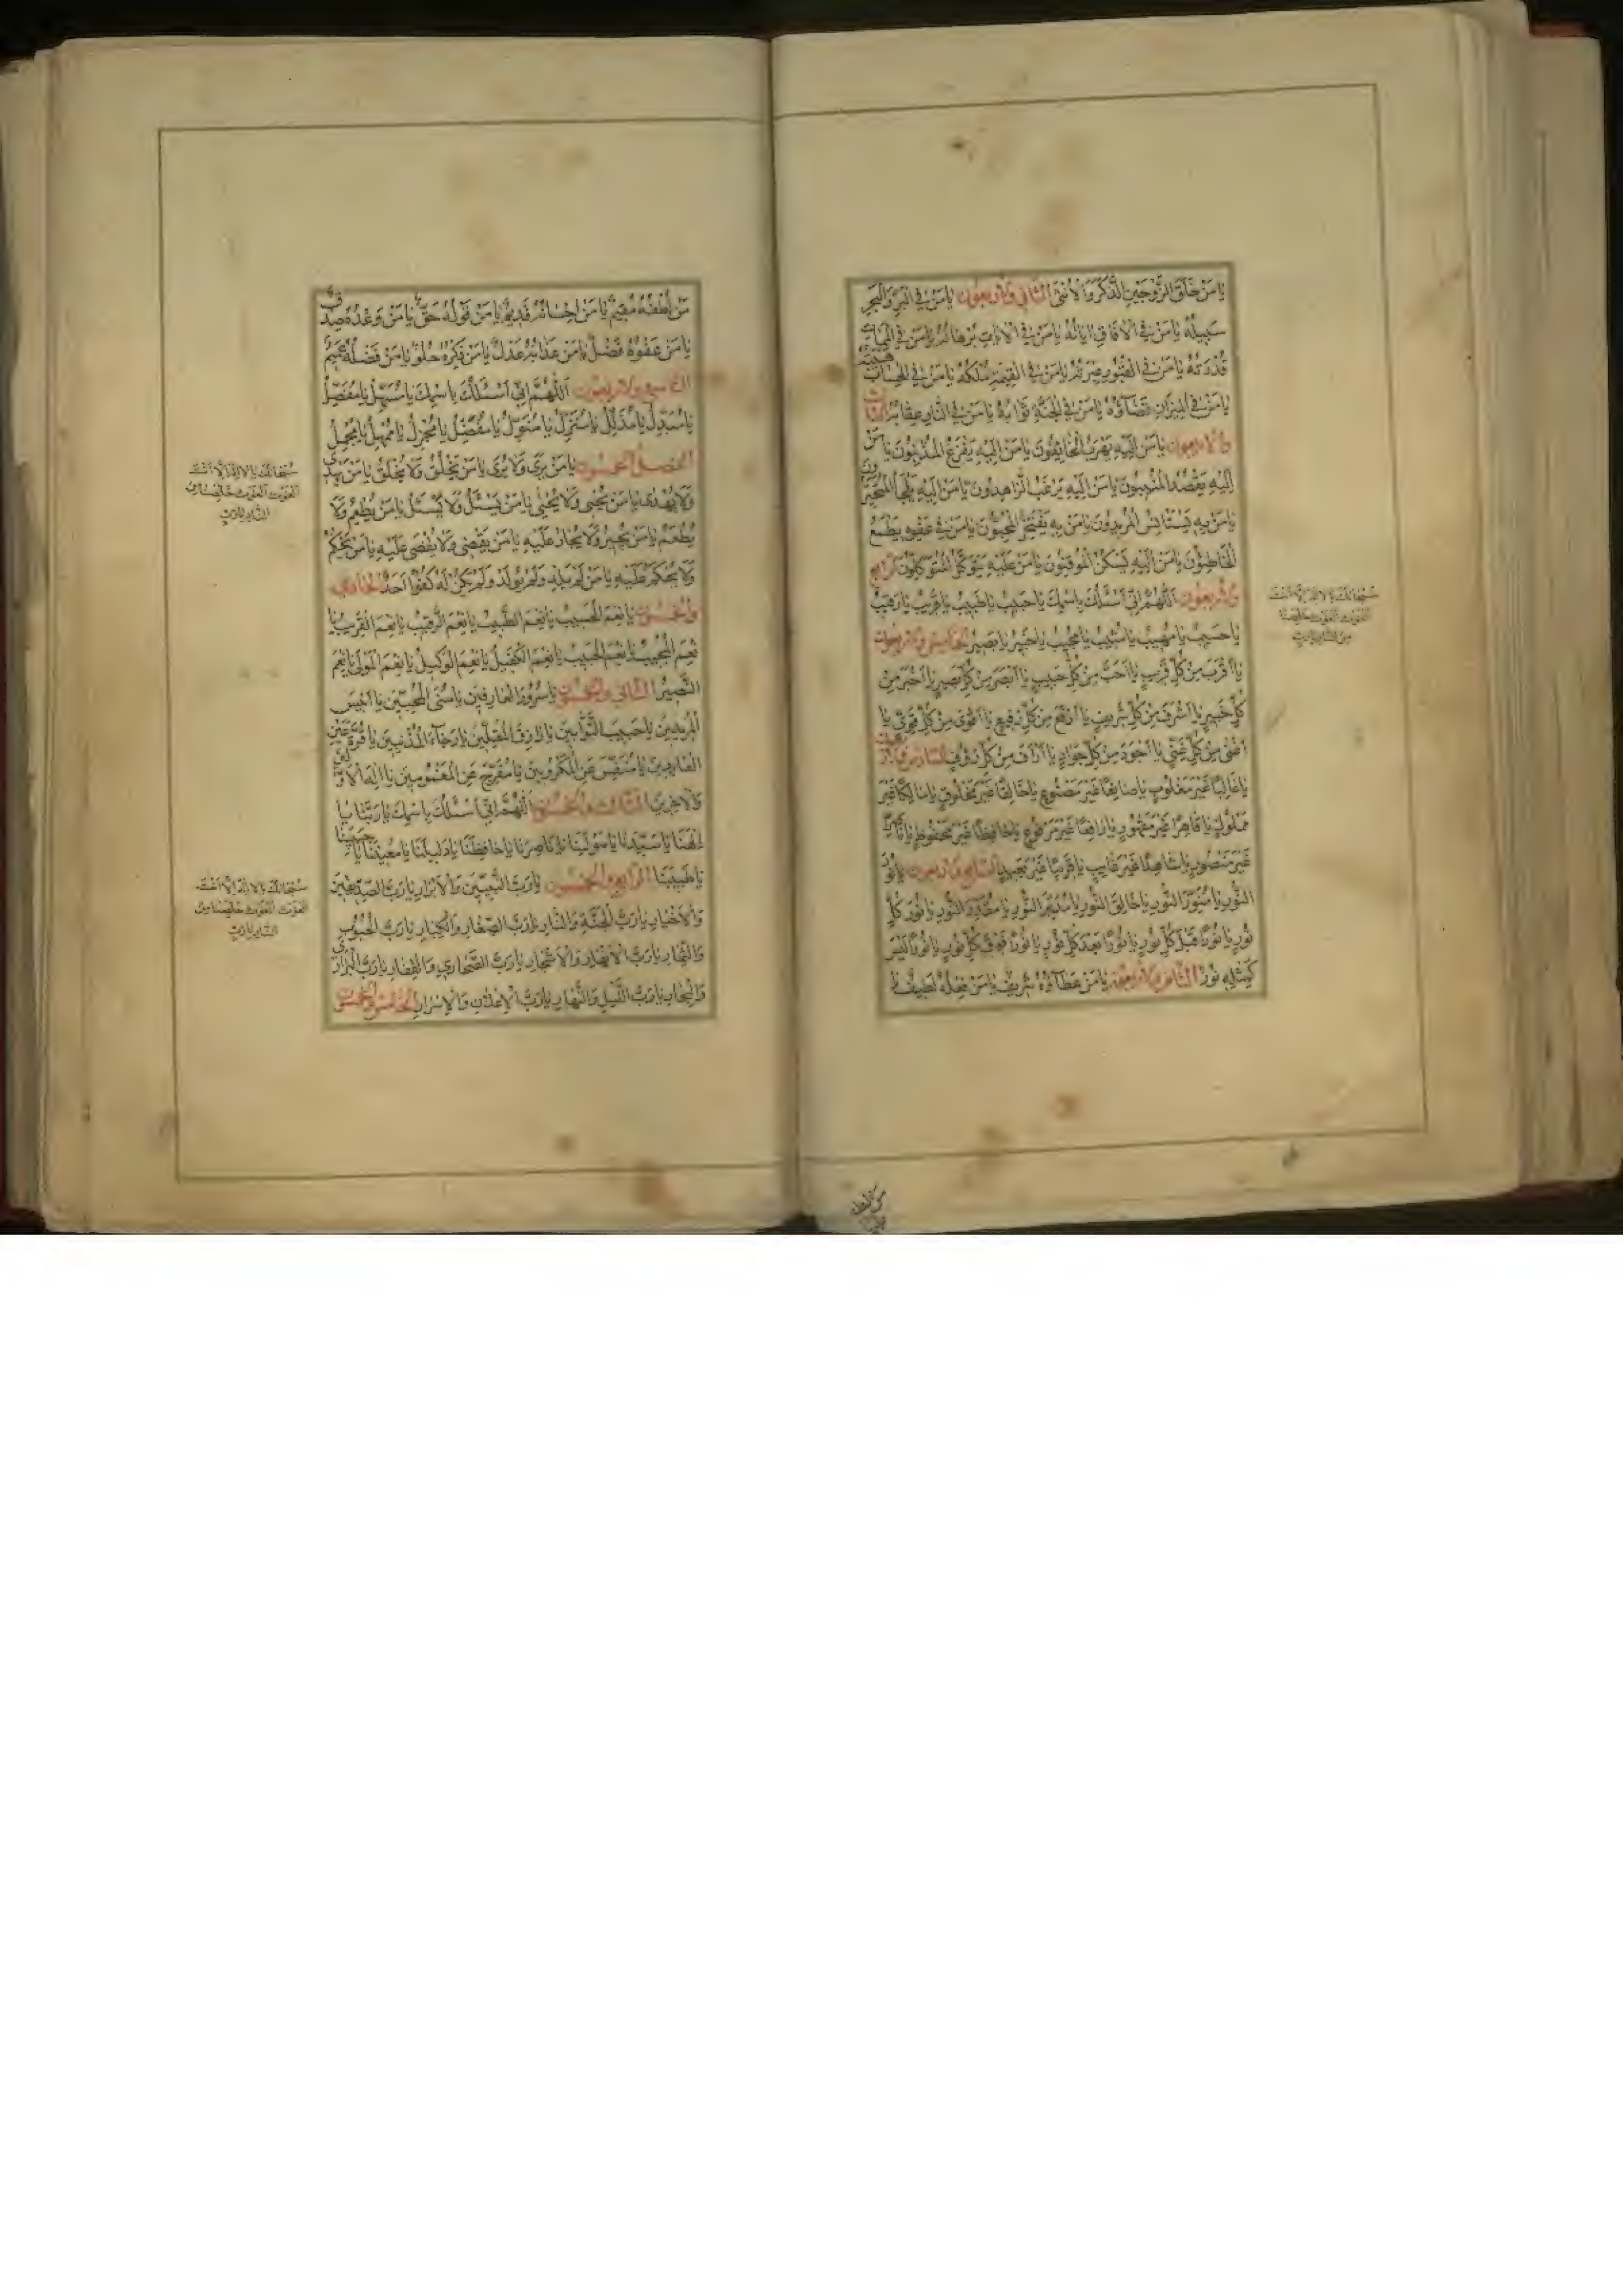 يَا مَنْ خَلَقَ الزَّوْجَيْنِ الذَّكَرَ وَالْاُنْثىٰ الثاني والاربعون يَا مَنْ فِي الْبَرِّ وَالْبَحْرِ
سَبِيلُهُ يَا مَنْ فِي الْآفَاقِ اٰيَاتُهُ يَا مَنْ فِي الْاٰيَاتِ بُرْهَانُهُ يَا مَنْ فِي الْمَمَاتِ
قُدْرَتُهُ يَا مَنْ فِي الْقُبُورِ عِبْرَتُهُ يَا مَنْ فِي الْقِيٰمَةِ مُلْكُهُ يَا مَنْ فِي الْحِسَابِ هَيْبَتُهُ
يَا مَنْ فِي الْمِيزَانِ قَضَاؤُهُ يَا مَنْ فِي الْجَنَّةِ ثَوَابُهُ يَا مَنْ فِي النَّارِ عِقَابُهُ الثالث
والاربعون يَا مَنْ اِلَيْهِ يَهْرَبُ الْخَائِفُونَ يَا مَنْ اِلَيْهِ يَفْزَعُ الْمُذْنِبُونَ يَا مَنْ
اِلَيْهِ يَقْصُدُ الْمُنِيبُونَ يَا مَنْ اِلَيْهِ يَرْغَبُ الزَّاهِدُونَ يَا مَنْ اِلَيْهِ يَلْجَأُ الْمُتَحَيِّرُونَ
يَا مَنْ بِهِ يَسْتَأْنِسُ الْمُرِيدُونَ يَا مَنْ بِهِ يَفْتَخِرُ الْمُحِبُّونَ يَا مَنْ فِي عَفْوِهِ يَطْمَعُ
الْخَاطِئُونَ يَا مَنْ اِلَيْهِ يَسْكُنُ الْمُوقِنُونَ يَا مَنْ عَلَيْهِ يَتَوَكَّلُ الْمُتَوَكِّلُونَ الرابع
والاربعون اَللّٰهُمَّ اِنِّي اَسْئَلُكَ بِاسْمِكَ يَا حَبِيبُ يَا طَبِيبُ يَا قَرِيبُ يَا رَقِيبُ
يَا حَسِيبُ يَا مُهِيبُ يَا مُثِيبُ يَا مُجِيبُ يَا خَبِيرُ يَا بَصِيرُ الخامس والاربعون
يَا اَقْرَبَ مِنْ كُلِّ قَرِيبٍ يَا اَحَبَّ مِنْ كُلِّ حَبِيبٍ يَا اَبْصَرَ مِنْ كُلِّ بَصِيرٍ يَا اَخْبَرَ مِنْ
كُلِّ خَبِيرٍ يَا اَشْرَفَ مِنْ كُلِّ شَرِيفٍ يَا اَرْفَعَ مِنْ كُلِّ رَفِيعٍ يَا اَقْوىٰ مِنْ كُلِّ قَوِيٍّ يَا
اَغْنىٰ مِنْ كُلِّ غَنِيٍّ يَا اَجْوَدَ مِنْ كُلِّ جَوَادٍ يَا اَرْأَفَ مِنْ كُلِّ رَؤُفٍ السادس والاربعون
يَا غَالِبًا غَيْرَ مَغْلُوبٍ يَا صَانِعًا غَيْرَ مَصْنُوعٍ يَا خَالِقًا غَيْرَ مَخْلُوقٍ يَا مَالِكًا غَيْرَ
مَمْلُوكٍ يَا قَاهِرًا غَيْرَ مَقْهُورٍ يَا رَافِعًا غَيْرَ مَرْفُوعٍ يَا حَافِظًا غَيْرَ مَحْفُوظٍ يَا نَاصِرًا
غَيْرَ مَنْصُورٍ يَا شَاهِدًا غَيْرَ غَايِبٍ يَا قَرِيبًا غَيْرَ بَعِيدٍ السابع والاربعون يَا نُورَ
النُّورِ يَا مُنَوِّرَ النُّورِ يَا خَالِقَ النُّورِ يَا مُدَبِّرَ النُّورِ يَا مُقَدِّرَ النُّورِ يَا نُورَ كُلِّ
نُورٍ يَا نُورًا قَبْلَ كُلِّ نُورٍ يَا نُورًا بَعْدَ كُلِّ نُورٍ يَا نُورًا فَوْقَ كُلِّ نُورٍ يَا نُورًا لَيْسَ
كَمِثْلِهِ نُورٌ الثامن والاربعون يَا مَنْ عَطَاؤُهُ شَرِيفٌ يَا مَنْ فِعْلُهُ لَطِيفٌ يَا
سُبْحَانَكَ يَا لَا اِلٰهَ اِلَّا اَنْتَ
الْغَوْثَ الْغَوْثَ خَلِّصْنَا
مِنَ النَّارِ يَا رَبِّ
مَنْ لُطْفُهُ مُقِيمٌ يَا مَنْ اِحْسَانُهُ قَدِيمٌ يَا مَنْ قَوْلُهُ حَقٌّ يَا مَنْ وَعْدُهُ صِدْقٌ
يَا مَنْ عَفْوُهُ فَضْلٌ يَا مَنْ عَذَابُهُ عَدْلٌ يَا مَنْ ذِكْرُهُ حُلْوٌ يَا مَنْ فَضْلُهُ عَمِيمٌ
التاسع والاربعون اَللّٰهُمَّ اِنِّي اَسْئَلُكَ بِاسْمِكَ يَا مُسَهِّلُ يَا مُفَصِّلُ
يَا مُبَدِّلُ يَا مُذَلِّلُ يَا مُنَزِّلُ يَا مُنَوِّلُ يَا مُفَضِّلُ يَا مُجْزِلُ يَا مُمْهِلُ يَا مُجْمِلُ
الفصل الخمسون يَا مَنْ يَرىٰ وَلَا يُرىٰ يَا مَنْ يَخْلُقُ وَلَا يُخْلَقُ يَا مَنْ يَهْدِي
وَلَا يُهْدىٰ يَا مَنْ يُحْيِي وَلَا يُحْيىٰ يَا مَنْ يَسْئَلُ وَلَا يُسْئَلُ يَا مَنْ يُطْعِمُ وَلَا
يُطْعَمُ يَا مَنْ يُجِيرُ وَلَا يُجَارُ عَلَيْهِ يَا مَنْ يَقْضِي وَلَا يُقْضىٰ عَلَيْهِ يَا مَنْ يَحْكُمُ
وَلَا يُحْكَمُ عَلَيْهِ يَا مَنْ لَمْ يَلِدْ وَلَمْ يُولَدْ وَلَمْ يَكُنْ لَهُ كُفُوًا اَحَدٌ الحادي
والخمسون يَا نِعْمَ الْحَسِيبُ يَا نِعْمَ الطَّبِيبُ يَا نِعْمَ الرَّقِيبُ يَا نِعْمَ الْقَرِيبُ يَا
نِعْمَ الْمُجِيبُ يَا نِعْمَ الْحَبِيبُ يَا نِعْمَ الْكَفِيلُ يَا نِعْمَ الْوَكِيلُ يَا نِعْمَ الْمَوْلىٰ يَا نِعْمَ
النَّصِيرُ الثاني والخمسون يَا سُرُورَ الْعَارِفِينَ يَا مُنَى الْمُحِبِّينَ يَا اَنِيسَ
الْمُرِيدِينَ يَا حَبِيبَ التَّوَّابِينَ يَا رَازِقَ الْمُقِلِّينَ يَا رَجَاءَ الْمُذْنِبِينَ يَا قُرَّةَ عَيْنِ
الْعَابِدِينَ يَا مُنَفِّسَ عَنِ الْمَكْرُوبِينَ يَا مُفَرِّجَ عَنِ الْمَغْمُومِينَ يَا اِلٰهَ الْاَوَّلِينَ
وَالْاٰخِرِينَ الثالث والخمسون اَللّٰهُمَّ اِنِّي اَسْئَلُكَ بِاسْمِكَ يَا رَبَّنَا يَا
اِلٰهَنَا يَا سَيِّدَنَا يَا مَوْلَيْنَا يَا نَاصِرَنَا يَا حَافِظَنَا يَا دَلِيلَنَا يَا مُعِينَنَا يَا حَبِيبَنَا
يَا طَبِيبَنَا الرابع والخمسون يَا رَبَّ النَّبِيِّينَ وَالْاَبْرَارِ يَا رَبَّ الصِّدِّيقِينَ
وَالْاَخْيَارِ يَا رَبَّ الْجَنَّةِ وَالنَّارِ يَا رَبَّ الصِّغَارِ وَالْكِبَارِ يَا رَبَّ الْحُبُوبِ
وَالثِّمَارِ يَا رَبَّ الْاَنْهَارِ وَالْاَشْجَارِ يَا رَبَّ الصَّحَارِي وَالْقِفَارِ يَا رَبَّ الْبَرَارِي
وَالْبِحَارِ يَا رَبَّ اللَّيْلِ وَالنَّهَارِ يَا رَبَّ الْاِعْلَانِ وَالْاِسْرَارِ الخامس والخمسون
سُبْحَانَكَ يَا لَا اِلٰهَ اِلَّا اَنْتَ
الْغَوْثَ الْغَوْثَ خَلِّصْنَا مِنَ
النَّارِ يَا رَبِّ
سُبْحَانَكَ يَا لَا اِلٰهَ اِلَّا اَنْتَ
الْغَوْثَ الْغَوْثَ خَلِّصْنَا مِنَ
النَّارِ يَا رَبِّ
مَنْ لُطْفُهُ